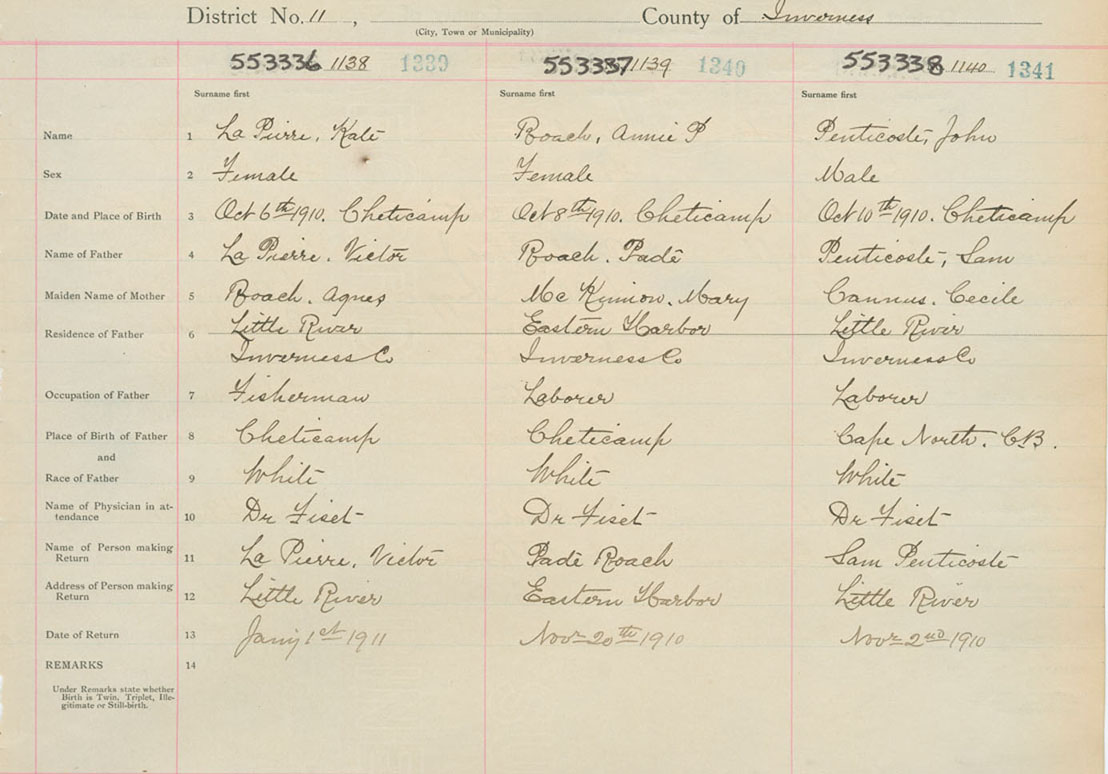 District No. 11 , County of Inverness
(City, Town or Municipality)
553336 1138 1339 553337 1139 1340 553338 1140 1341
Surname first Surname first Surname first
Name 1 La Pierre, Kate Roach, Annie P Penticoste, John
Sex 2 Female Female Male
Date and Place of Birth 3 Oct 6th 1910. Cheticamp Oct 8th 1910. Cheticamp Oct 10th 1910. Cheticamp
Name of Father 4 La Pierre. Victor Roach. Padé Penticoste, Sam
Maiden Name of Mother 5 Roach. Agnes Mc Kinnon. Mary Cannus. Cecile
Residence of Father 6 Little River Eastern Harbor Little River
Inverness Co Inverness Co Inverness Co
Occupation of Father 7 Fisherman Laborer Laborer
Place of Birth of Father 8 Cheticamp Cheticamp Cape North. C.B.
and
Race of Father 9 White White White
Name of Physician in at-
tendance 10 Dr Fiset Dr Fiset Dr Fiset
Name of Person making
Return 11 La Pierre, Victor Padé Roach Sam Penticoste
Address of Person making
Return 12 Little River Eastern Harbor Little River
Date of Return 13 Jany 1st 1911 Novr 20th 1910 Novr 2nd 1910
REMARKS 14
Under Remarks state whether
Birth is Twin, Triplet, Ille-
gitimate or Still-birth.